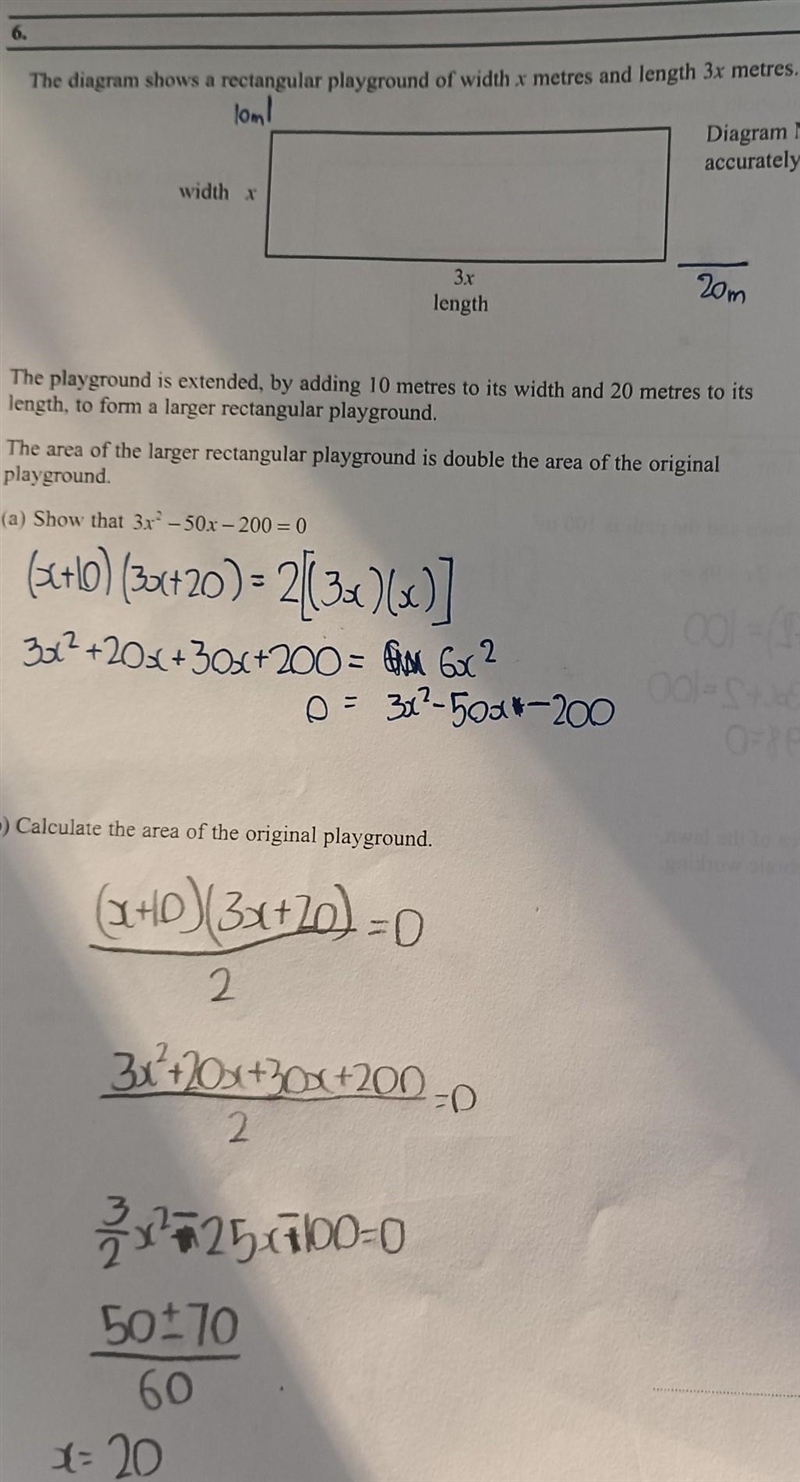 6.
The diagram shows a rectangular playground of width x metres and length 3x metres.
10m
Diagram
accurately
width x
3x
length
20m
The playground is extended, by adding 10 metres to its width and 20 metres to its
length, to form a larger rectangular playground.
The area of the larger rectangular playground is double the area of the original
playground.
(a) Show that 3x² – 50x – 200 = 0
(x+10)(3x+20) = 2[(3x)(x)]
3x²+20x+30x+200 = 6x²
0 = 3x²-50x-200
) Calculate the area of the original playground.
(x+10)(3x+20)/2 = 0
3x²+20x+30x+200/2 = 0
3/2x²-25x-100=0
50±70/60
x= 20